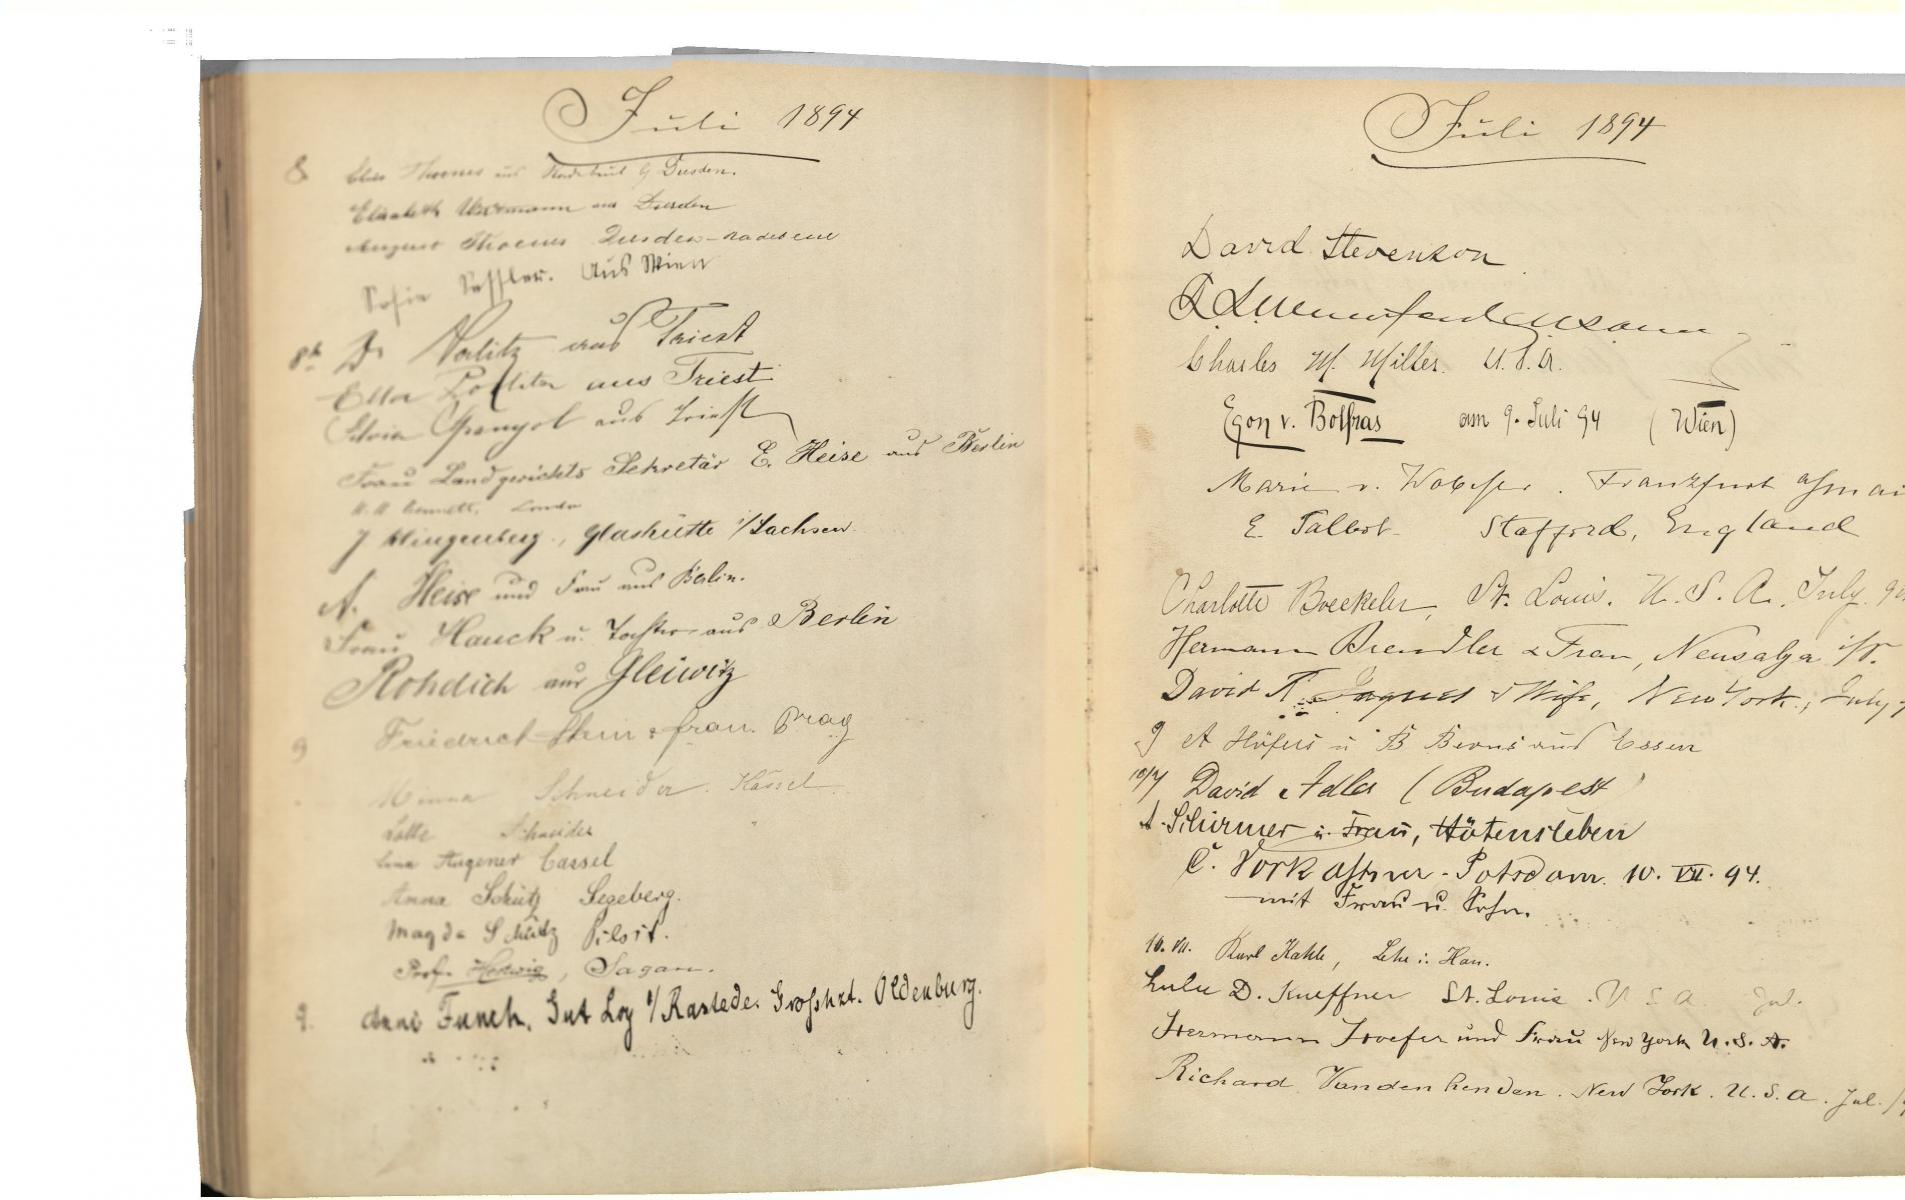 Juli 1894
8 Thoenes aus Radebeul b/ Dresden.
Elisabeth aus Dresden
August Thoenes Dresden-Radebeul
Sofie aus Wien
8ten Dr aus Triest
Etta aus Triest
Silvia aus Triest
Frau Landgerichts Sekretär E. Heise aus Berlin
London
J Klingenberg, Glashütte i/Sachsen.
A. Heise und Frau aus Berlin.
Frau Hauck u. Tochter aus Berlin
Rohdich aus Gleiwitz
9 Friedrich Stein & frau. Prag
Minna Schneider. Kassel.
Lotte Schneider
Lina Augener Cassel
Anna Schütz Segeberg.
Magda Schütz Pilsit.
Prof. Hedwig, Sagan.
9. Anni Funch, Gut Loy i/Rastede. Grosshzt. Oldenburg.
Juli 1894
David Stevenson
Charles M. Miller. U.S.A.
Egon v. Bolfras am 9. Juli 94 (Wien)
Marie v. Frankfurt a/mai
E. Talbot Stafford, England
Charlotte Boeckeler, St. Louis. U.S.A. July 94
Hermann Brendler & Frau, Neusalza i/S.
David T. Jaques & Wife, New York, July
9 A Höfels u B Berns aus Essen
10/7 David Adler (Budapest)
A. Schirmer u. Frau, Hötensleben
C. Vorkastner-Potsdam. 10. VII. 94.
mit Frau u. Sohn.
10. VII. Karl Kahle, Lehe i. Han.
Lulu D. Kueffner St. Louis. U S A Jul.
Hermann Hoefer und Frau New York U.S.A.
Richard Vandenhenden. New York. U.S.A. Jul.